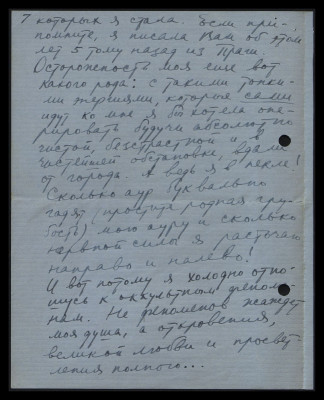 7 которых я стала. Если при-
помните, я писала Вам об этом
лет 5 тому назад из Праги.
Осторожность моя еще вот
какого рода: с такими тонки-
ми энергиями, которые сами
идут ко мне я бы хотела опе-
рировать будучи абсолютно
чистой, бесстрастной и в
чистейшей обстановке, вдали
от города. А ведь я в пекле!
Сколько аур буквально
гадят (простите родная гру-
бость) мою ауру и сколько
нервной силы я растрачиваю
направо и налево!
И вот потому я холодно отно-
шусь к оккультным феноме-
нам. Не феноменов жаждет
моя душа, а откровения,
великой любви и просвет-
ления полного...